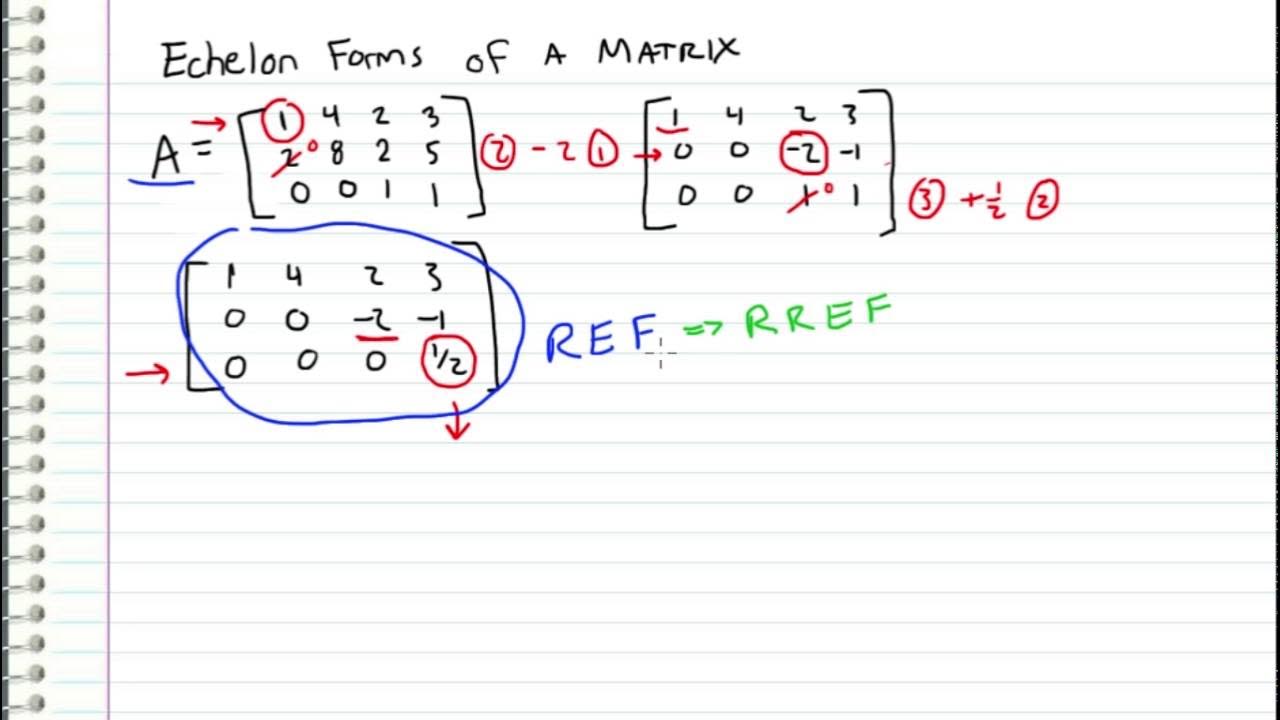 Echelon Forms of A MATRIX
A = [ 1 4 2 3 ] [ 1 4 2 3 ]
2 0 8 2 5 ② - 2 ① 0 0 -2 -1
0 0 1 1 0 0 1 0 1 ③ + 1/2 ②
1 4 2 3
0 0 -2 -1 REF => RREF
0 0 0 1/2